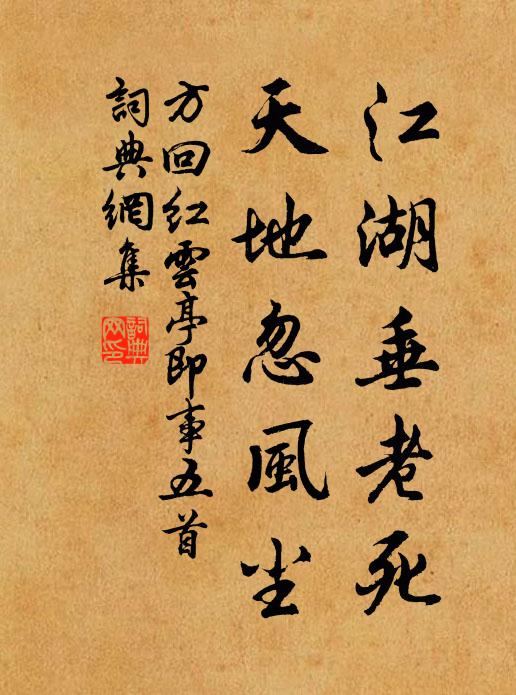 江湖垂老死
天地忽風尘
方回红雲亭即事五首
詞典網集
詞典网印